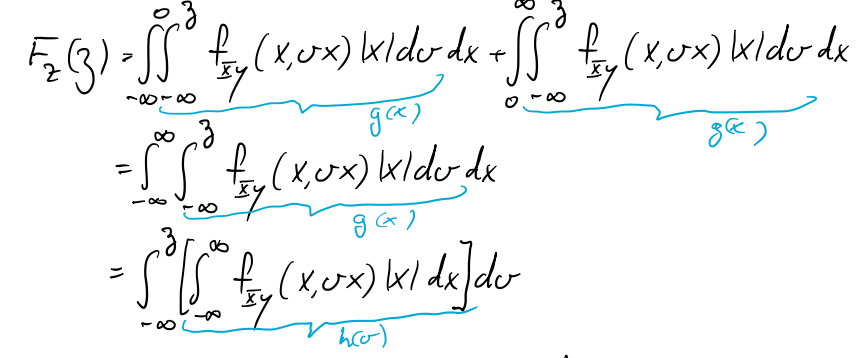 F_Z(z) = ∫_{-∞}^{0} ∫_{-∞}^{z} f_{XY}(x, vx) |x| dv dx + ∫_{0}^{∞} ∫_{-∞}^{z} f_{XY}(x, vx) |x| dv dx
g(x) g(x)
= ∫_{-∞}^{∞} ∫_{-∞}^{z} f_{XY}(x, vx) |x| dv dx
g(x)
= ∫_{-∞}^{z} [∫_{-∞}^{∞} f_{XY}(x, vx) |x| dx] dv
h(v)